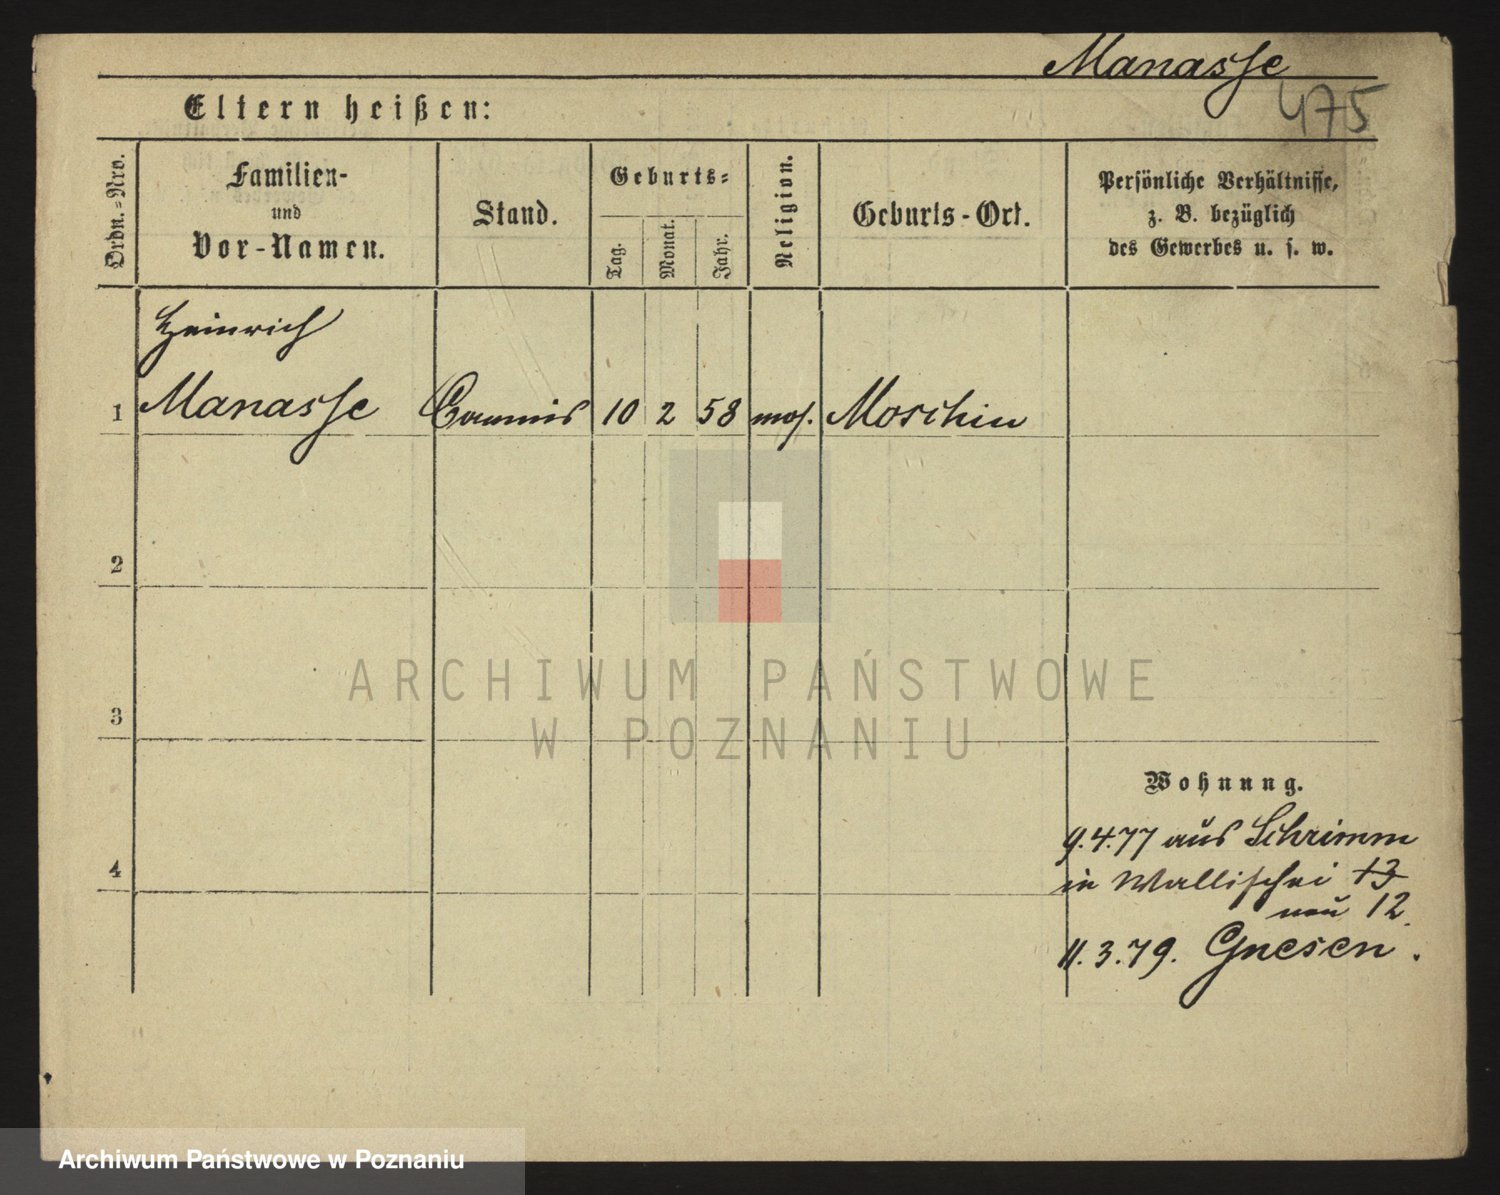 Manasse
475
Eltern heißen:
Ordn.-Nro.
Familien-
und
Vor-Namen.
Stand.
Geburts-
Tag.
Monat.
Jahr.
Religion.
Geburts-Ort.
Persönliche Verhältnisse,
z. B. bezüglich
des Gewerbes u. s. w.
Heinrich
1 Manasse Commis 10 2 58 mos. Moschin
2
3
4
Wohnung.
9.4.77 aus Schrimm
in Wallischei 13
neu 12.
11.3.79. Gnesen.
ARCHIWUM PAŃSTWOWE
W POZNANIU
Archiwum Państwowe w Poznaniu